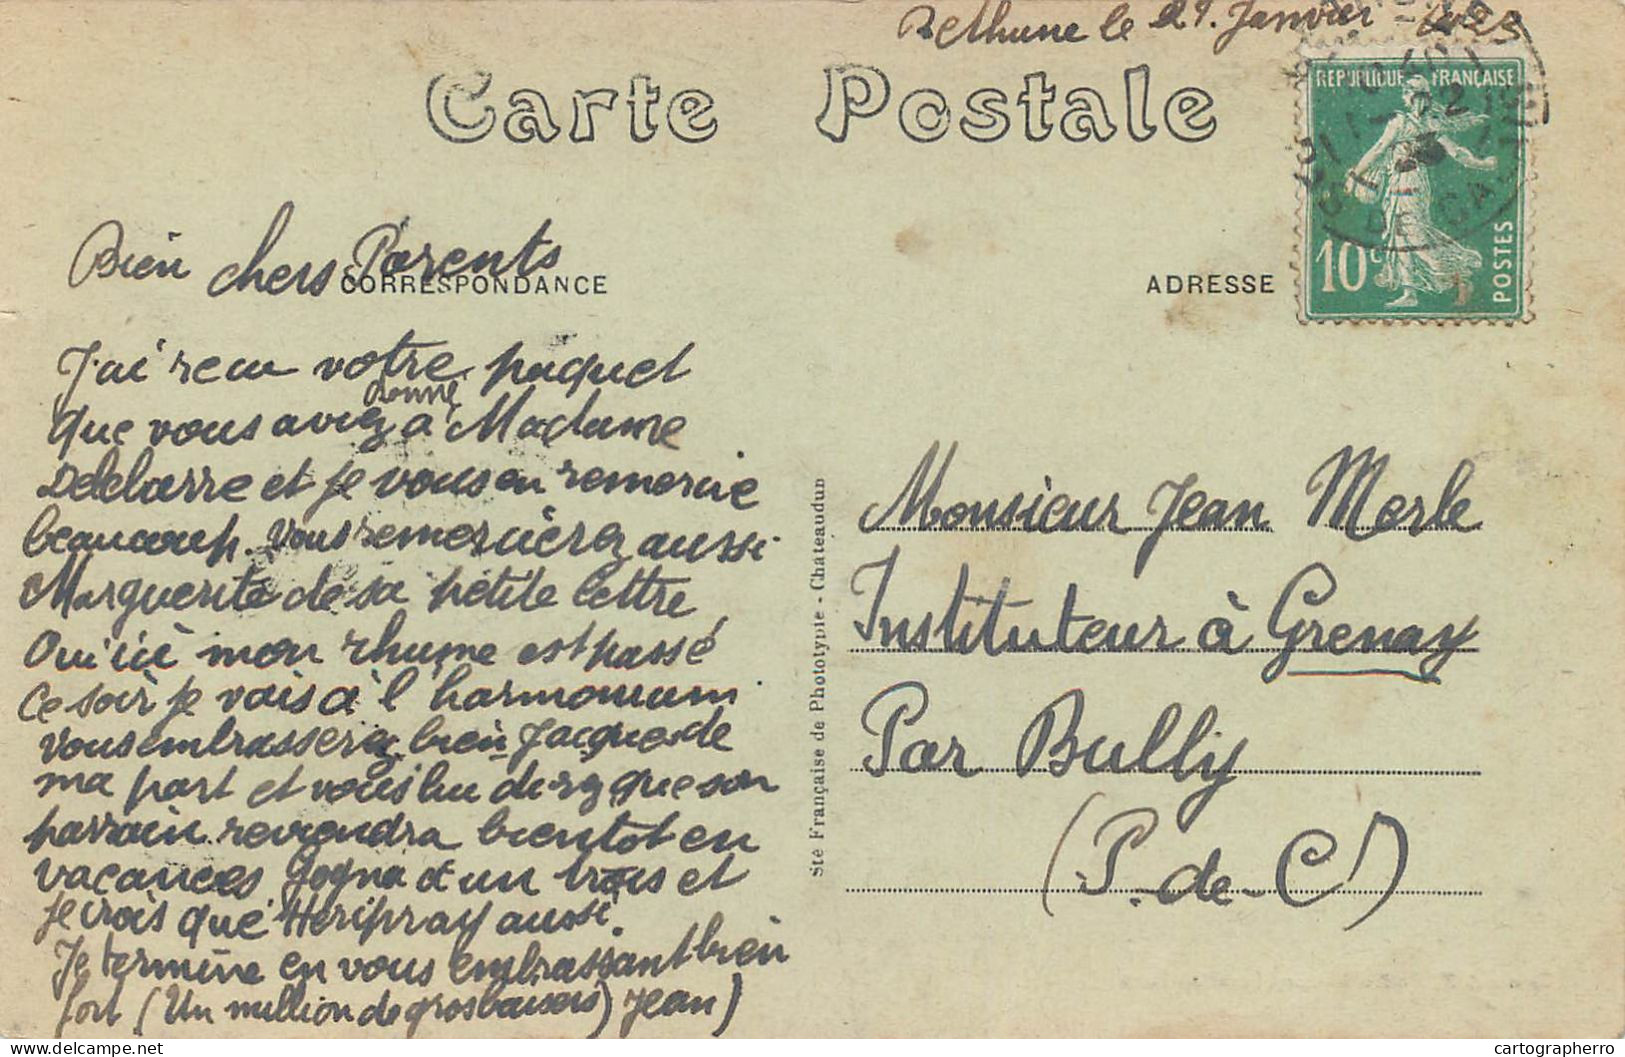 Bethune le 29. Janvier
Carte Postale
REPUBLIQUE FRANÇAISE
10c
POSTES
DE CA
CORRESPONDANCE
ADRESSE
Bien chers Parents
J'ai recu votre paquet
que vous aviez donné a Madame
Delebarre et je vous en remercie
beaucoup. Vous remercierez aussi
Marguerite de sa petite lettre
Qu'ici mon rhume est passé
Ce soir je vais à l'harmonium
Vous embrasserez bien Jacques de
ma part et vous lui direz que son
parrain reviendra bientot en
vacances et un et
je crois que aussi.
Je termine en vous embrassant bien
fort (Un million de gros baisers) Jean)
Ste Française de Phototypie - Chateaudun
Monsieur Jean Merle
Instituteur à Grenay
Par Bully
(P.-de-C)
delcampe.net
cartographerro